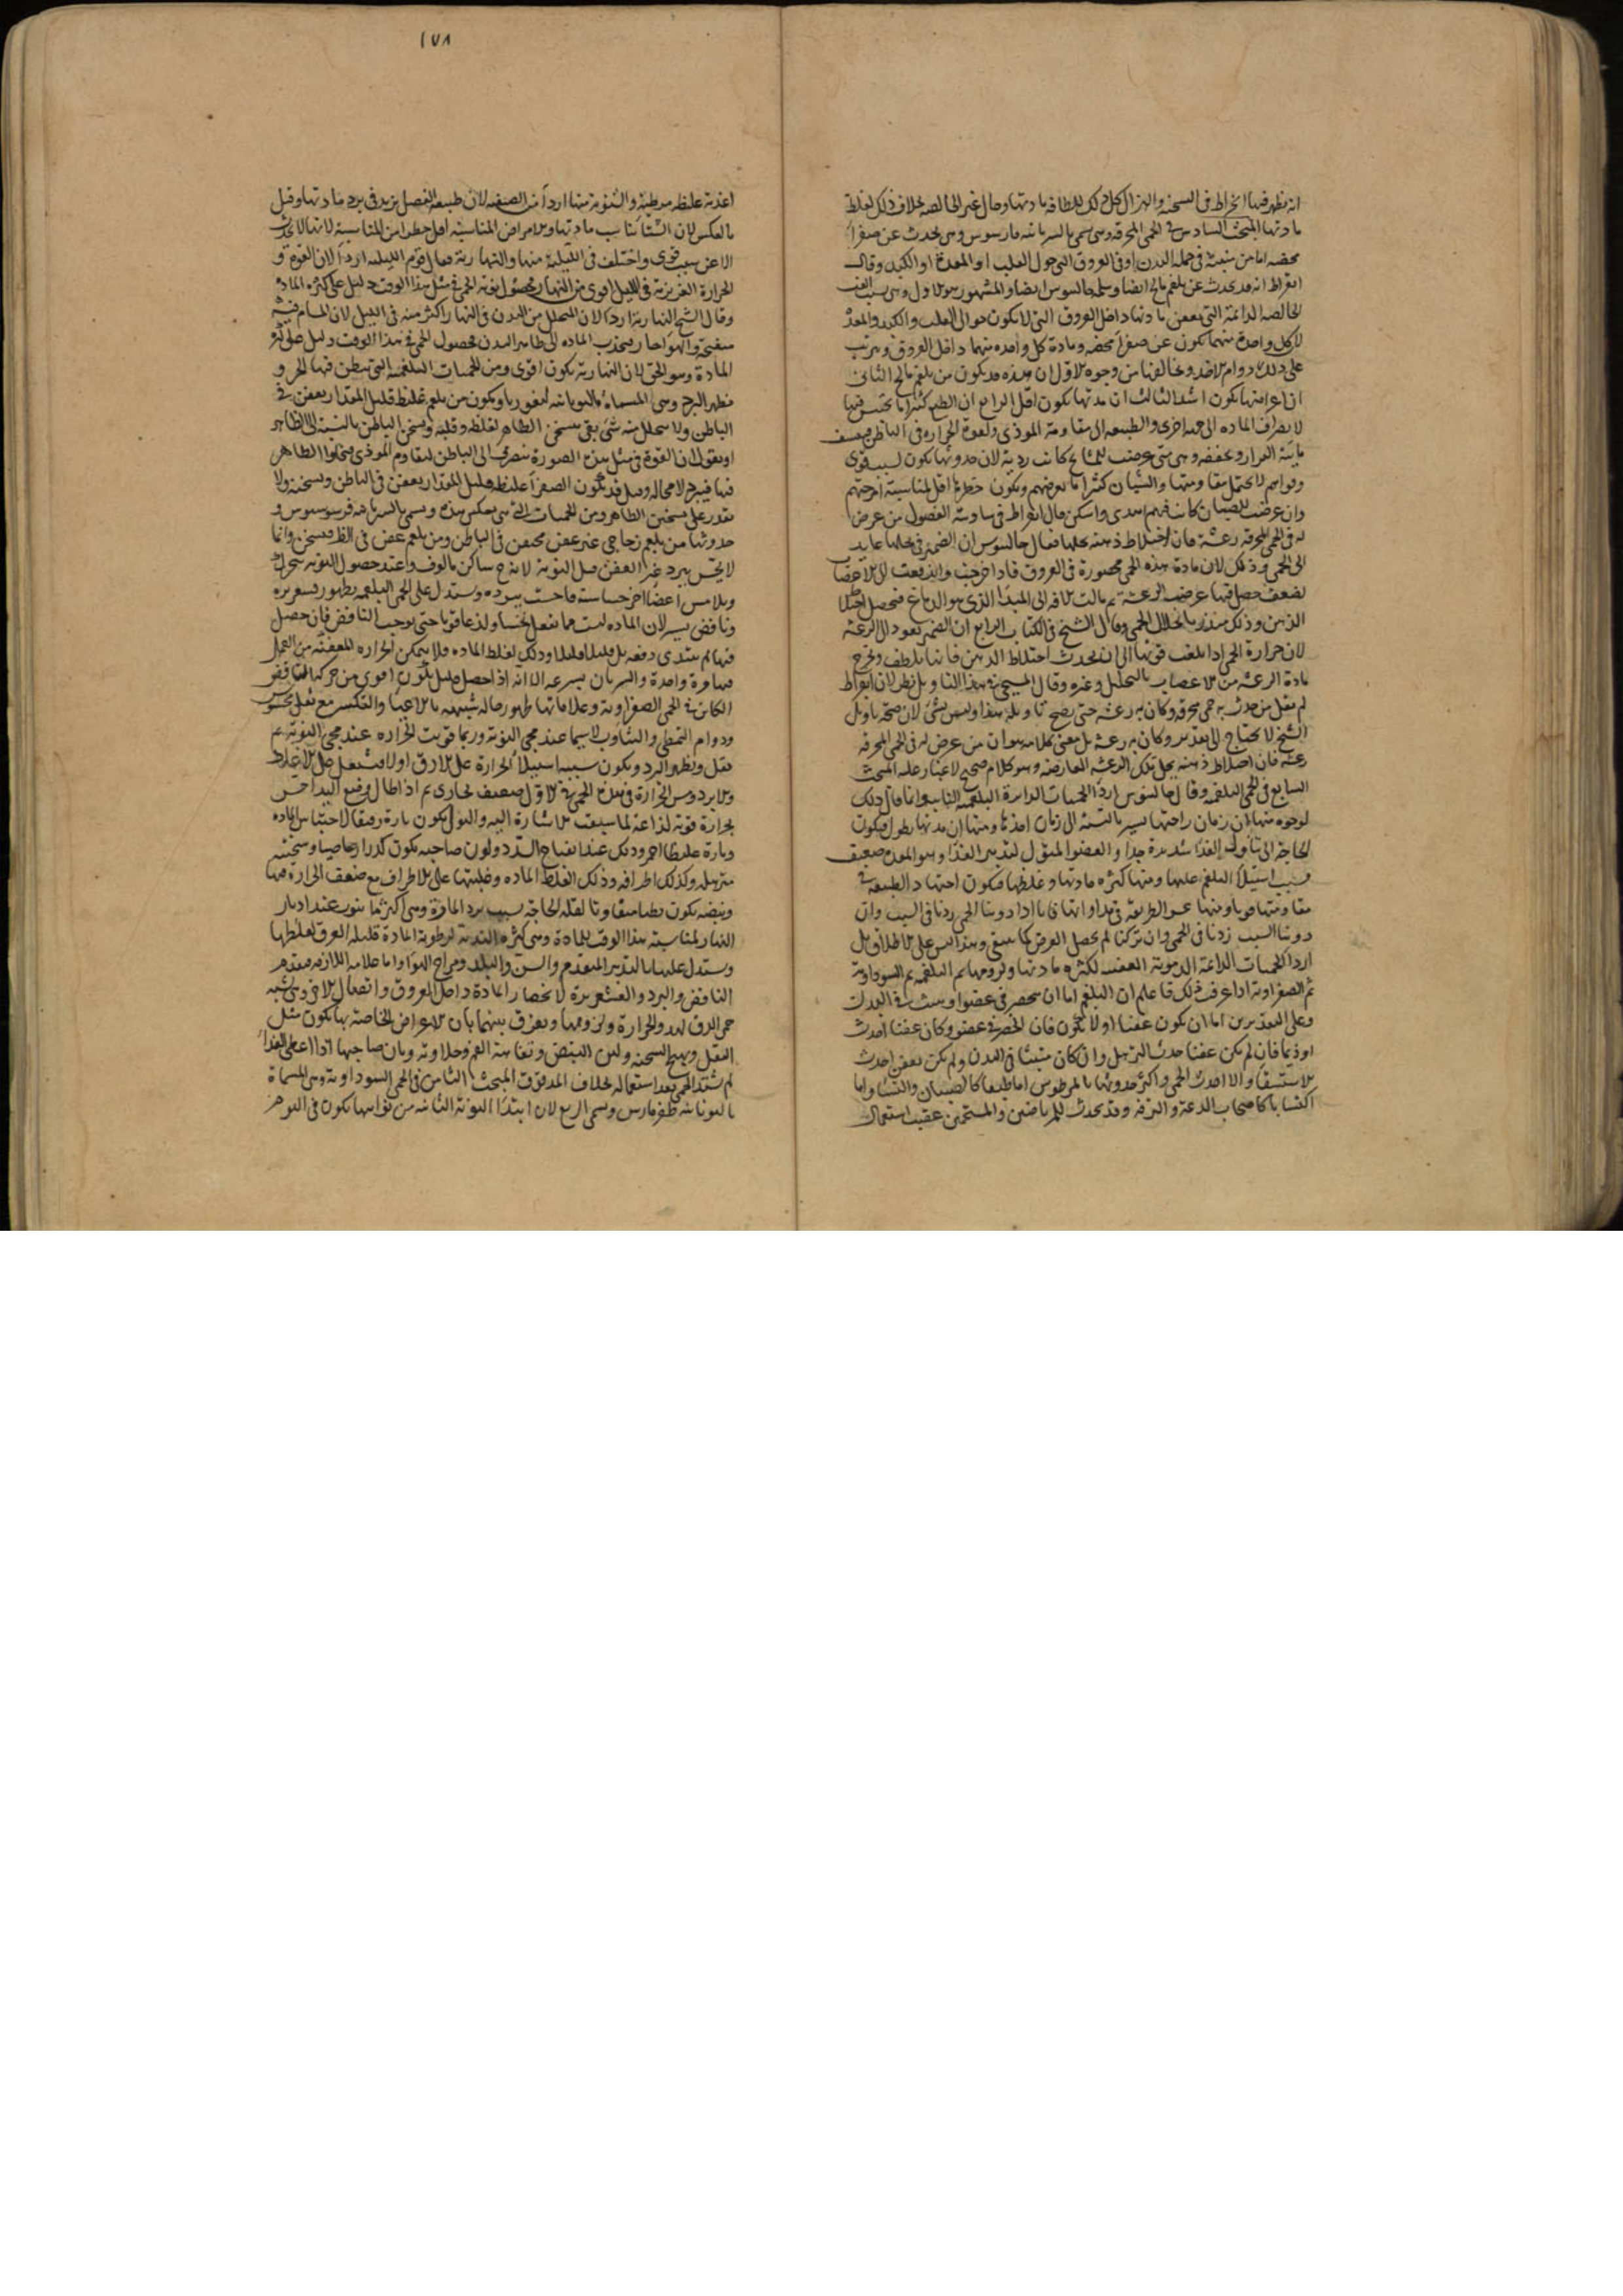 انه يظهر فيها انخراط في السحنة والهزال كل ذلك للطافة مادتها وحال غير الخالصة بخلاف ذلك لغلظ
مادتها المبحث السادس في الحمى المحرقة وهي تسمى بالسريانيه فارسوس وهي تحدث عن صفرا
محضه اما من منبثه في جمله البدن او في العروق التي حول القلب او المعدة او الكبد وقال
ابقراط انه قد يحدث عن بلغم مالح ايضا وجالينوس ايضا والمشهور هو الاول وهي الغب
الخالصه الدائمة التي تعفن مادتها داخل العروق التي لا تكون حوالى القلب والكبد والمعدة
لان كل واحدة منهما تكون عن صفرا محضه ومادة كل واحده منهما داخل العروق
على ذلك دوام الاخذ وتخالفها من وجوه الاول ان هذه قد يكون من بلغم مالح الثاني
ان اعراضها يكون اشد الثالث ان مدتها يكون اقل الرابع ان الطبع كثيرا ما يحتبس فيها
لانصراف الماده الى جهه اخرى والطبيعه الى مقاومة الموذى ولقوة الحراره في الباطن
مائية البراز وتجففه وهي متى عرضت للمشايخ كانت ردية لان حدوثها يكون لسبب قوى
وقواهم لا تحتمل مقاومتها والشبان كثيرا ما تعرضهم ويكون خطرها اقل لمناسبة امزجتهم
وان عرضت للصبيان كانت فيهم اهدى واسكن قال ابقراط في سادسة الفصول من عرض
له في الحمى المحرقه رعشة فان اختلاط ذهنه يحلها فقال جالينوس ان الضمير في يحلها عايد
الى الحمى وذلك لان مادة هذه الحمى محصورة في العروق فاذا خرجت واندفعت الى الاعضا
لضعف حصل فيها عرضت الرعشة ثم مالت الافة الى المبدا الذي هو الدماغ فيحصل اختلاط
الذهن وذلك منذر بانحلال الحمى وقال الشيخ في الكتاب الرابع ان الضمير يعود الى الرعشه
لان حرارة الحمى اذا بلغت قوتها الى ان يحدث اختلاط الذهن فانها تلطف وتخرج
مادة الرعشه من الاعصاب بالتحليل وغيره وقال المسيحي في هذا التاويل نظر لان ابقراط
لم يقل من حدث به حمى محرقه وكان به رعشه حتى يصح تاويله هذا وليس بشئ لان صحة تاويل
الشيخ لا تحتاج الى تقدير وكان به رعشة بل معنى كلامه هو ان من عرض له في الحمى المحرقه
رعشة فان اختلاط ذهنه يحل تلك الرعشه العارضه وهو كلام صحيح لا غبار عليه المبحث
السابع في الحمى البلغميه وقال جالينوس اردا الحميات الدائرة البلغميه النايبه وانما قال ذلك
لوجوه منها ان زمان راحتها يسير بالنسبة الى زمان اخذها ومنها ان مدتها تطول فيكون
الحاجة الى تناول الغذا شديدة جدا والعضو المتولى لتدبير الغذا وهو المعدة ضعيف
بسبب استيلا البلغم عليها ومنها كثره مادتها وغلظها فيكون اجتهاد الطبيعه في
مقاومتها قويا ومنها عسر الطريقه في مداواتها فانا اذا داوينا الحمى زدنا في السبب وان
داوينا السبب زدنا في الحمى وان تركنا لم يحصل الغرض كما ينبغي وهذا ليس على الاطلاق بل
اردا الحميات الدائمة الدموية العفنه لكثره مادتها ولزومها ثم البلغميه ثم السوداوية
ثم الصفراويه اذا عرفت ذلك فاعلم ان البلغم اما ان ينحصر في عضو او ينبث في البدن
وعلى التقديرين اما ان يكون عفنا او لا يكون فان انحصر في عضو وكان عفنا احدث
اوذيما فان لم يكن عفنا حدث الترهل وان كان منبثا في البدن ولم يكن يعفن احدث
الاستسقا والا احدث الحمى واكثر حدوثها بالمرطوبين اما طبعا كالصبيان والنسا واما
اكتسابا كاصحاب الدعة والترفه وقد تحدث للمرتاضين والمستحمين عقيب استعمال
١٧٨
اغذيه غليظه مرطبة والشتوية منها اردا من الصيفيه لان طبيعه الفصل تزيد في برد مادتها وقيل
بالعكس لان الشتا يناسب مادتها والامراض المناسبة اقل خطرا من المناسبة لانها لا تحدث
الا عن سبب قوى واختلف في الليلية منها والنهارية فقال قوم الليليه اردا لان القوة و
الحرارة الغريزية في الليل اقوى من النهار فحصول نوبة الحمى في مثل هذا الوقت دليل على كثرة المادة
وقال الشيخ النهارية اردا لان التحلل من البدن في النهار اكثر منه في الليل لان المسام فيه
منفتحة والهوا حار يجذب الماده الى ظاهر البدن فحصول الحمى في هذا الوقت دليل على كثرة
المادة وهو الحق لان النهارية يكون اقوى ومن الحميات البلغمية التي تبطن فيها الحر و
يظهر البرد وهي المسماة باليونانيه انفوريا ويكون من بلغم غليظ قليل المقدار يعفن في
الباطن ولا يتحلل منه شئ يفي بتسخين الظاهر لغلظه وقلته وتسخن الباطن بالنسبة الى الظاهر
او نقول ان القوة في مثل هذه الصورة تنصرف الى الباطن لتقاوم الموذى فيخلوا الظاهر
فيها فيبرد لا محاله وقيل قد يكون الصفرا غليظه قليل المقدار يعفن في الباطن وتسخنه ولا
تقدر على تسخين الظاهر ومن الحميات التي هي بعكس هذه وتسمى بالسريانيه و
حدوثها من بلغم زجاجي غير عفن محتقن في الباطن ومن بلغم عفن في الظاهر فيسخن وانما
لا يحس ببرد غير العفن قبل النوبة لانه ح ساكن مالوف وعند حصول النوبه يتحرك
ويلامس اعضا اخر حساسة فاحست ببرده ويستدل على الحمى البلغميه بظهور قشعريرة
ونافض يسير لان الماده ليست مما تفعل نخسا ولذعا قويا حتى يوجب النافض فان حصل
فيها لم يبتدى دفعه بل قليلا قليلا وذلك لغلظ الماده فلا يتمكن الحراره المعفنة من العمل
فيها مرة واحدة والسريان بسرعه الا انه اذا حصل قليل يكون اقوى من حركة النافض
الكاين في الحمى الصفراوية وعلاماتها ظهور حاله شبيهه بالاعيا والتكسر مع ثقل محسوس
ودوام التمطى والتثاوب لاسيما عند مجى النوبة وربما قويت الحراره عند مجى النوبة ثم
تقل ويظهر البرد ويكون سببه استيلا الحرارة على الارق اولا فتشتعل قبل الاغلظ
والابرد ومس الحرارة في هذه الحمى في الاول ضعيف بخارى ثم اذا طال وضع اليد احس
بحرارة قوية لذاعة لما سبقت الاشارة اليه والبول يكون تارة رقيقا لاحتباس الماده
وتارة غليظا احمر وذلك عند انفتاح السدد ولون صاحبه يكون كدرا رصاصيا وسحنته
مترهله وكذلك اطرافه وذلك لغلظ الماده وغلبتها على الاطراف مع ضعف الحرارة فيها
ونبضه يكون بطيا متفاوتا لقلة الحاجة بسبب برد المادة وهي اكثر ما تنوب عند ادبار
النهار لمناسبة هذا الوقت للمادة وهي كثيره الندية لرطوبة المادة قليله العرق لغلظها
ويستدل عليها بالتدبير المتقدم والسن والبلد ومزاج الهوا واما علامه اللازمه فعدم
النافض والبرد والقشعريرة لانحصار المادة داخل العروق واتصال الاخذ وهي تشبه
حمى الدق لهدو الحرارة ولزومها ويفرق بينهما بان الاعراض الخاصة بها يكون مثل
الثقل وتهيج السحنه ولين النبض وتفاهة الفم وحلاوته وبان صاحبها اذا اعطى الغذا
لم تشتد الحمى بعد استعماله بخلاف المدقوق المبحث الثامن في الحمى السوداويه وهي المسماة
باليونانيه طفرمارس وتسمى الربع لان ابتدا النوبة الثانيه من نوابها يكون في اليوم